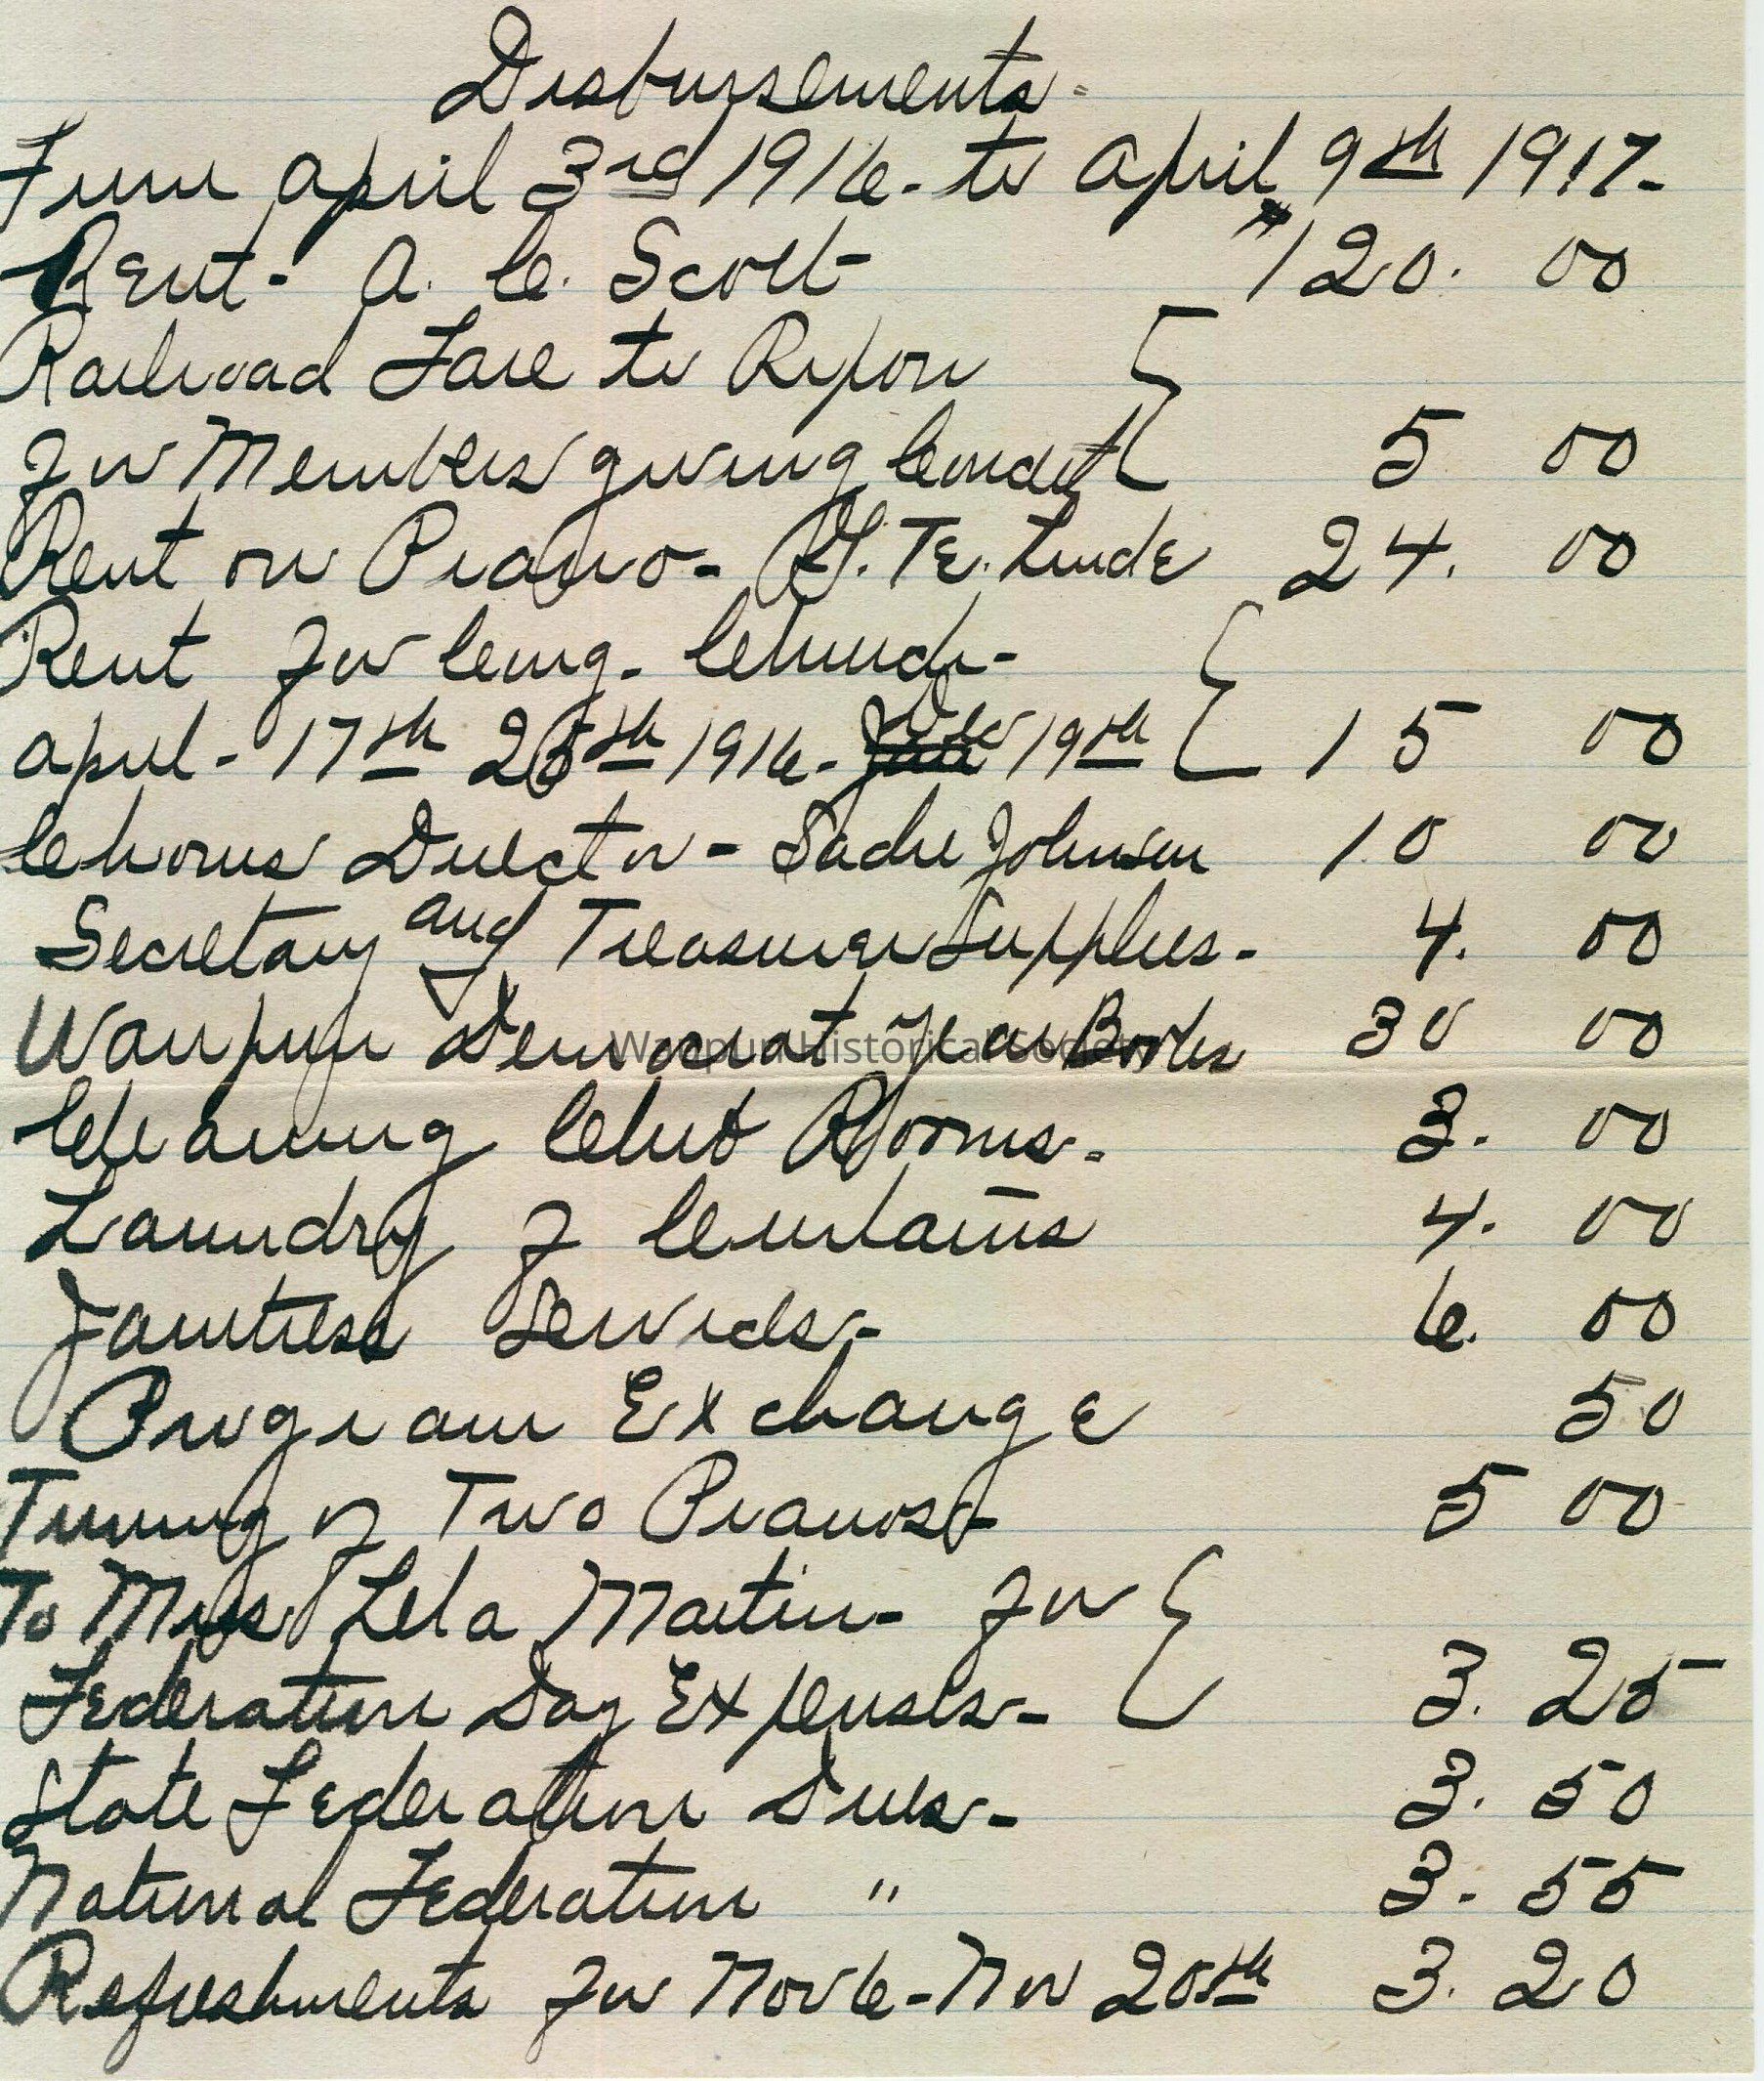 Disbursements-
From April 3rd 1916- to April 9th 1917-
Rent- A. C. Scott $120. 00
Railroad Fare to Ripon
for Members giving Concert 5 00
Rent on Piano- Linde 24. 00
Rent for Cong. Church-
April- 17th 25th 1916- Dec 19th 15 00
Chorus Director- Sadie Johnson 10 00
Secretary and Treasurer Supplies- 4. 00
Waupun Democrat Year Books 30 00
Waupun Historical Society
Cleaning Club Rooms- 3. 00
Laundry of Curtains 4. 00
Janitress Services- 6. 00
Program Exchange 50
Tuning of Two Pianos- 5 00
To Miss Lela Martin- for
Federation Day Expenses- 3. 25
State Federation Dues- 3. 50
National Federation " 3. 55
Refreshments for Nov 6- Nov 20th 3. 20